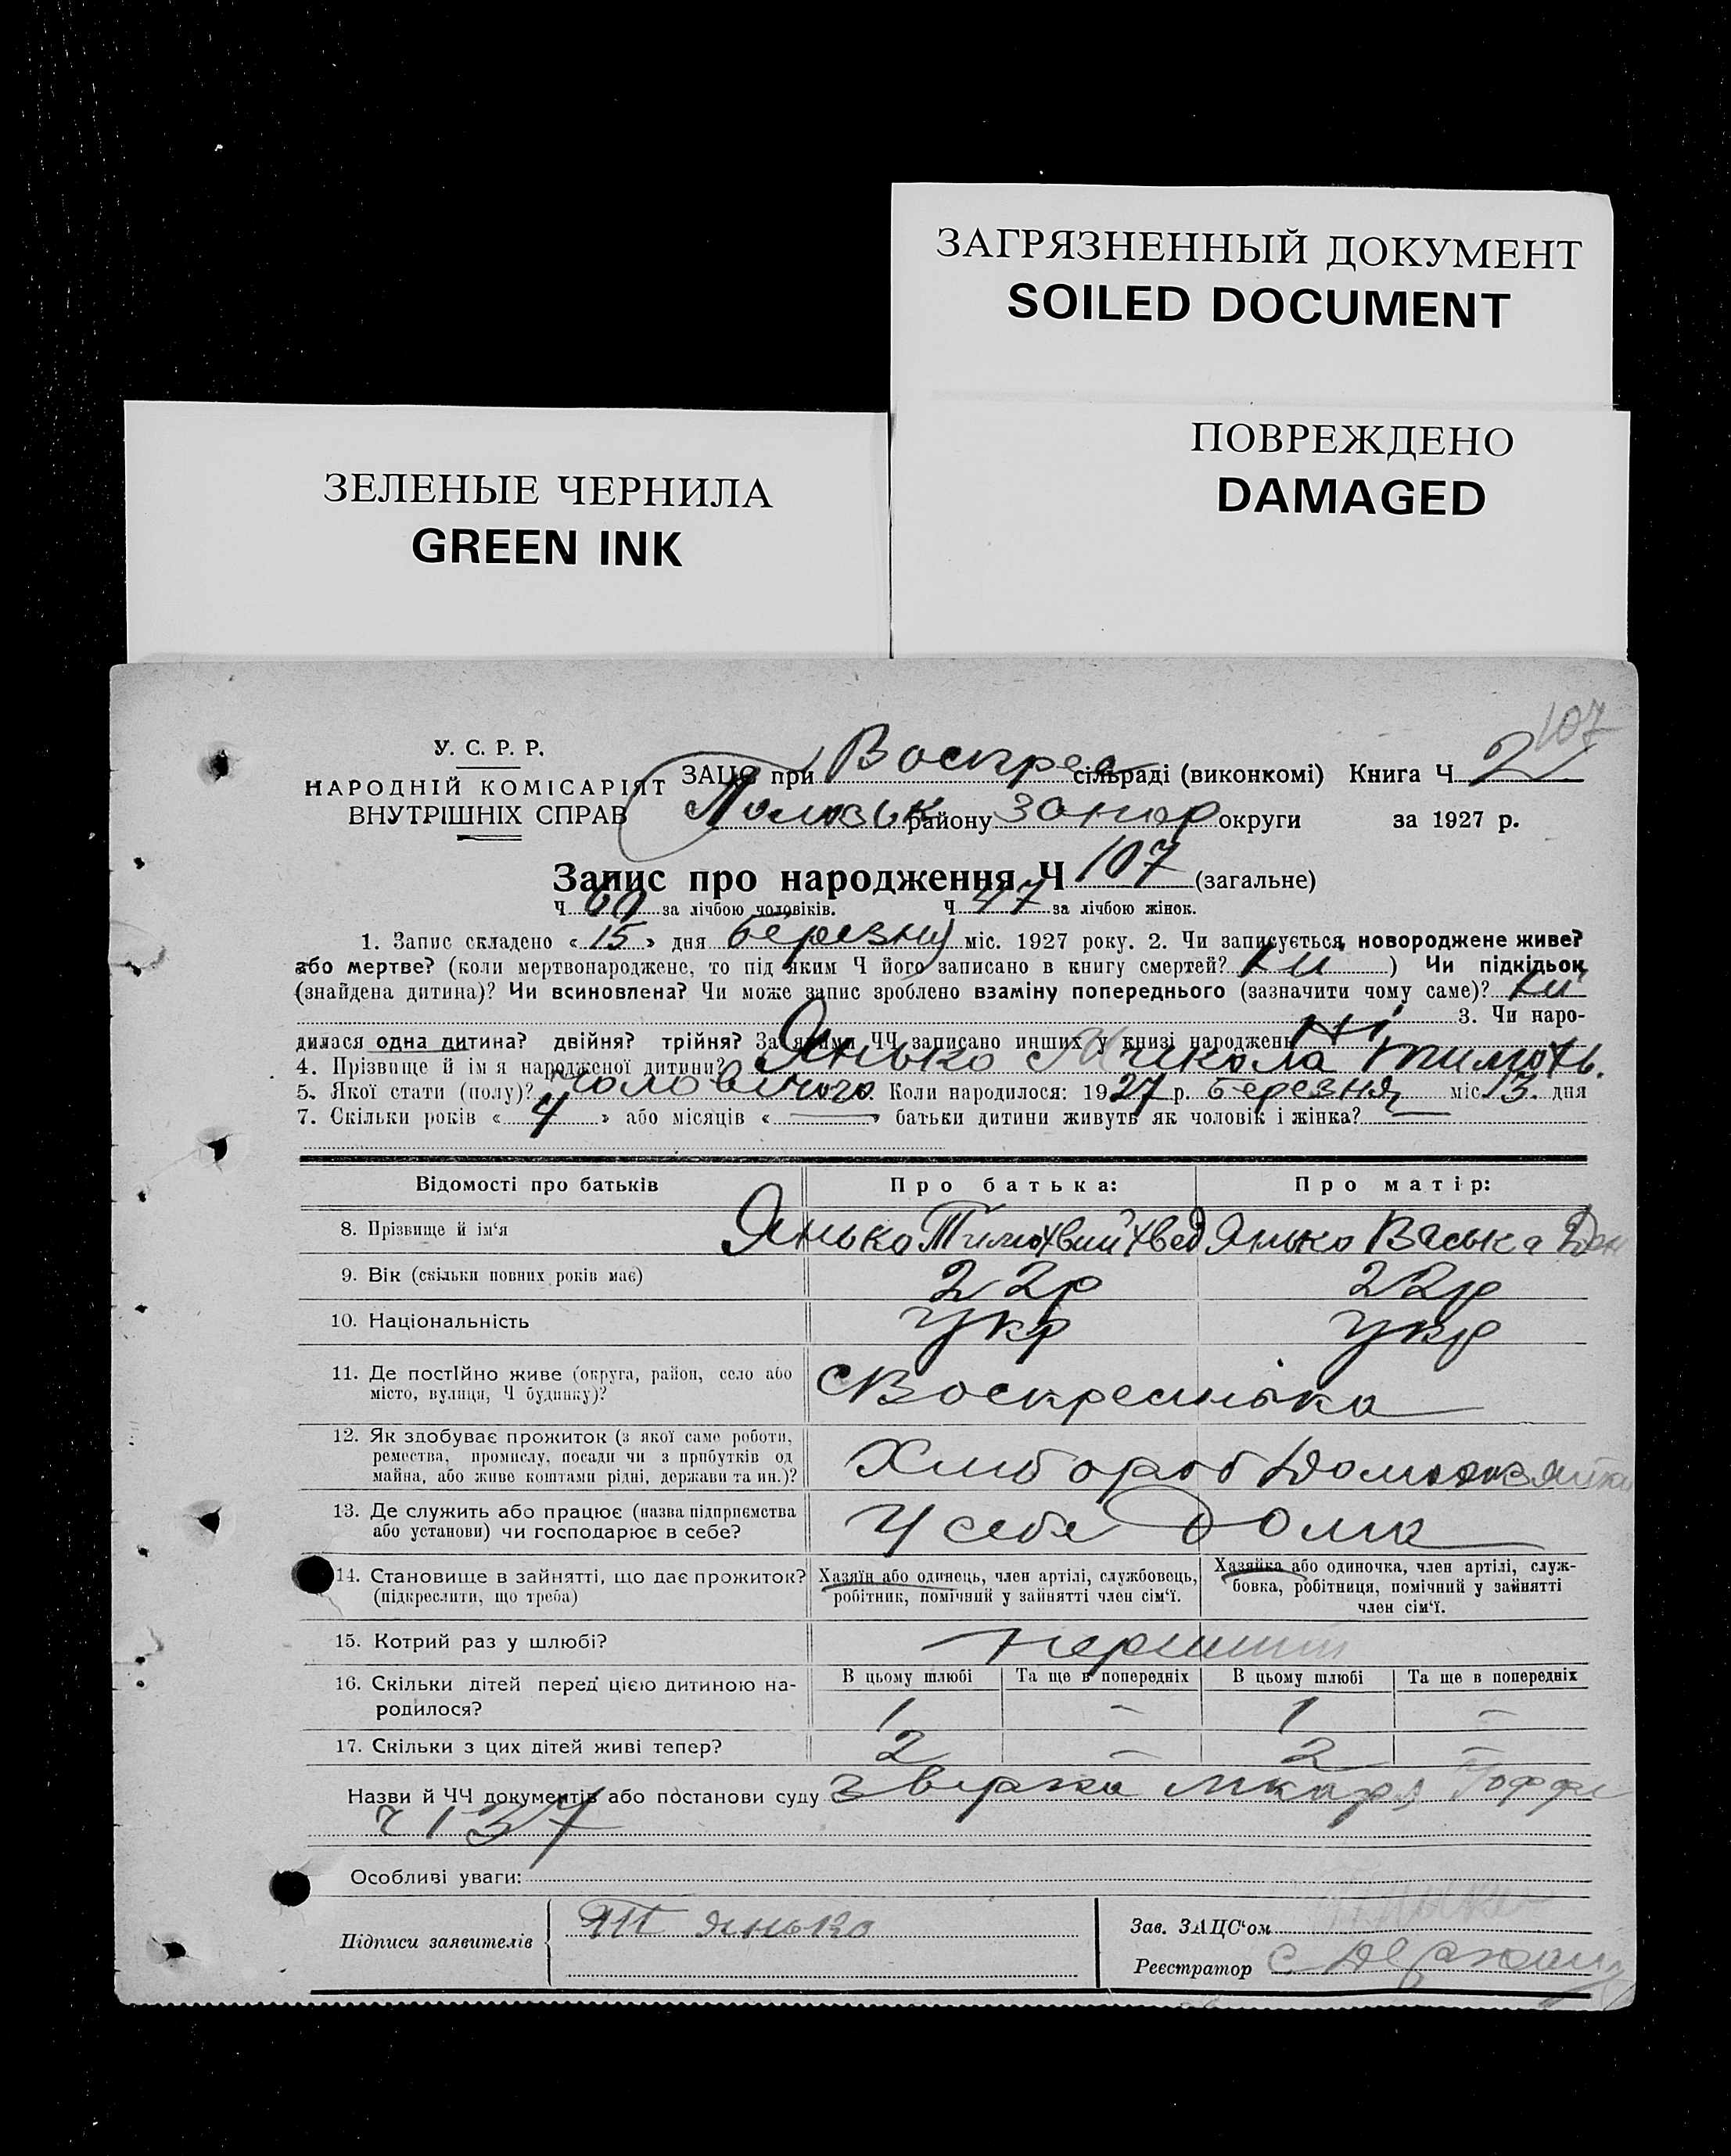 ЗАГРЯЗНЕННЫЙ ДОКУМЕНТ
SOILED DOCUMENT
ПОВРЕЖДЕНО
DAMAGED
ЗЕЛЕНЫЕ ЧЕРНИЛА
GREEN INK
107
У. С. Р. Р.
НАРОДНІЙ КОМІСАРІЯТ
ВНУТРІШНІХ СПРАВ
ЗАЦС при Воскрес сільраді (виконкомі) Книга Ч 2
району округи за 1927 р.
Запис про народження Ч 107 (загальне)
Ч 60 за лічбою чоловіків. Ч 47 за лічбою жінок.
1. Запис складено « 15 » дня березня міс. 1927 року. 2. Чи записується новороджене живе?
або мертве? (коли мертвонароджене, то під яким Ч його записано в книгу смертей? ) Чи підкідьок
(знайдена дитина)? Чи всиновлена? Чи може запис зроблено взаміну попереднього (зазначити чому саме)?
3. Чи наро-
дилася одна дитина? двійня? трійня? За якими ЧЧ записано инших у книзі народжень Ні
4. Прізвище й ім я народженої дитини? Янько Микола Тимохв.
5. Якої стати (полу)? чоловічого. Коли народилося: 1927 р. березня міс 13 дня
7. Скільки років « 4 » або місяців « — » батьки дитини живуть як чоловік і жінка? —
Відомості про батьків
Про батька:
Про матір:
8. Прізвище й ім'я
Янько Тимохвий Хвед
Янько Васька Дем
9. Вік (скільки повних років має)
22р
22р
10. Національність
Укр
Укр
11. Де постійно живе (округа, район, село або
місто, вулиця, Ч будинку)?
с Воскресенька
12. Як здобуває прожиток (з якої саме роботи,
ремества, промислу, посади чи з прибутків од
майна, або живе коштами рідні, держави та ин.)?
Хлибороб
13. Де служить або працює (назва підприємства
або установи) чи господарює в себе?
У себе Дома
14. Становище в зайнятті, що дає прожиток?
(підкреслити, що треба)
Хазяїн або одинець, член артілі, службовець,
робітник, помічний у зайнятті член сім'ї.
Хазяйка або одиночка, член артілі, служ-
бовка, робітниця, помічний у зайнятті
член сім'ї.
15. Котрий раз у шлюбі?
перший
16. Скільки дітей перед цією дитиною на-
родилося?
В цьому шлюбі
Та ще в попередніх
В цьому шлюбі
Та ще в попередніх
1 — 1 —
17. Скільки з цих дітей живі тепер?
2 — 2 —
Назви й ЧЧ документів або постанови суду
ч 137
Особливі уваги:
Підписи заявителів
Янько
Зав. ЗАЦС'ом
Реєстратор